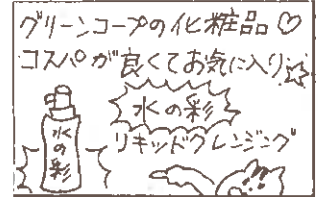 グリーンコープの化粧品♡
コスパが良くてお気に入り☆
水の彩
リキッドクレンジング
水の彩